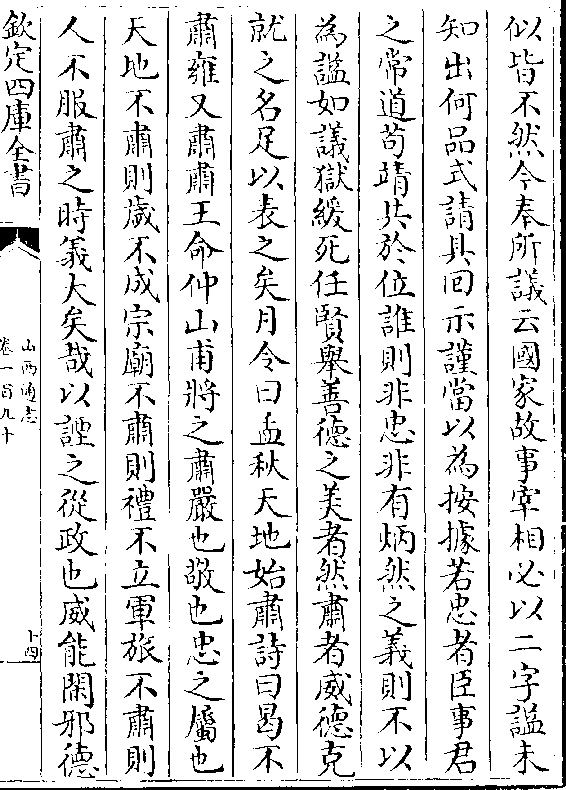 似皆不然今奉所議云國家故事宰相必以二字諡未
知出何品式請具回示謹當以為按據若忠者臣事君
之常道苟靖共於位誰則非忠非有炳然之義則不以
為諡如議獄緩死任賢舉善德之美者然肅者威德克
就之名足以表之矣月令曰孟秋天地始肅詩曰曷不
肅雍又肅肅王命仲山甫將之肅嚴也敬也忠之屬也
天地不肅則歲不成宗廟不肅則禮不立軍旅不肅則
人不服肅之時義大矣哉以諲之從政也威能閑邪德
欽定四庫全書
山西通志
卷一百九十
十四